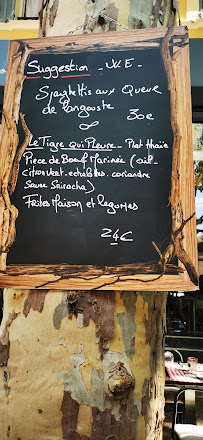 Suggestion - W.E -
Spaghettis aux Queue
de langouste
30€
Le Tigre qui Pleure - Plat thaïe
Piece de Boeuf Marinée (ail-
citron vert - echalottes - coriandre
Sauce Siracha)
Frites Maison et legumes
24€